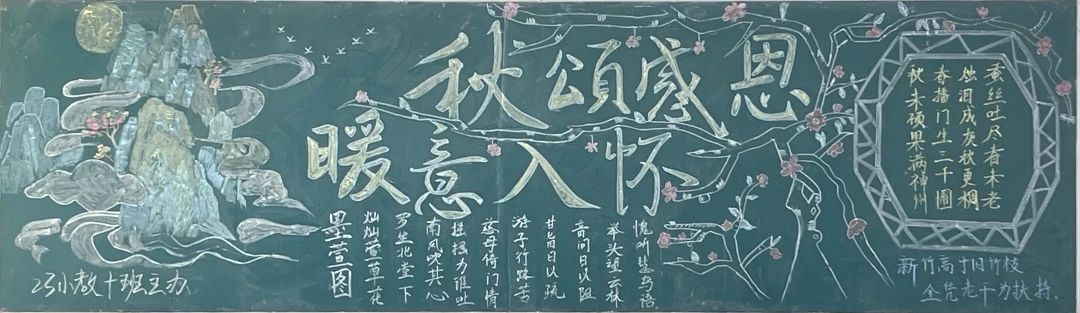 秋頌感恩
暖意入怀
墨萱图
灿灿萱草花
罗生北堂下
南风吹其心
摇摇为谁吐
慈母倚门情
游子行路苦
甘旨日以疏
音问日以阻
举头望云林
愧听慧鸟语
蚕丝吐尽春未老
烛泪成灰秋更稠
春播门生二千圃
秋来硕果满神州
新竹高于旧竹枝
全凭老干为扶持.
小教十班主办